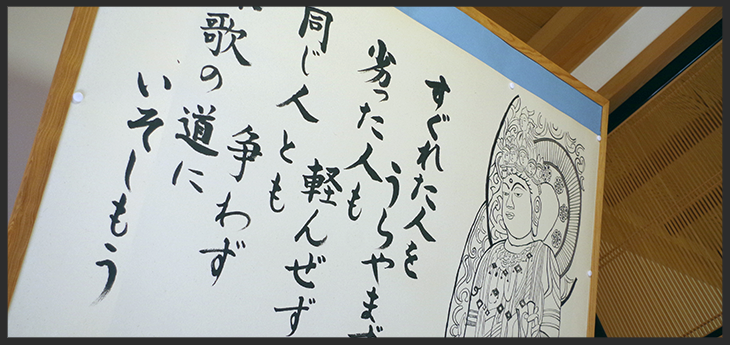 すぐれた人を
うらやまず
劣った人も
軽んぜず
同じ人とも
争わず
歌の道に
いそしもう